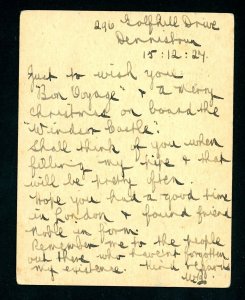 296 Golfhill Drive
Dennistoun
15:12:27.
Just to wish you
"Bon Voyage" & a merry
christmas on board the
"Windsor Castle".
Shall think of you when
filling my pipe & that
will be pretty often.
Hope you had a good time
in London & found friend
noble in form.
Remember me to the people
out there who havent forgotten
my existence. Kind regards